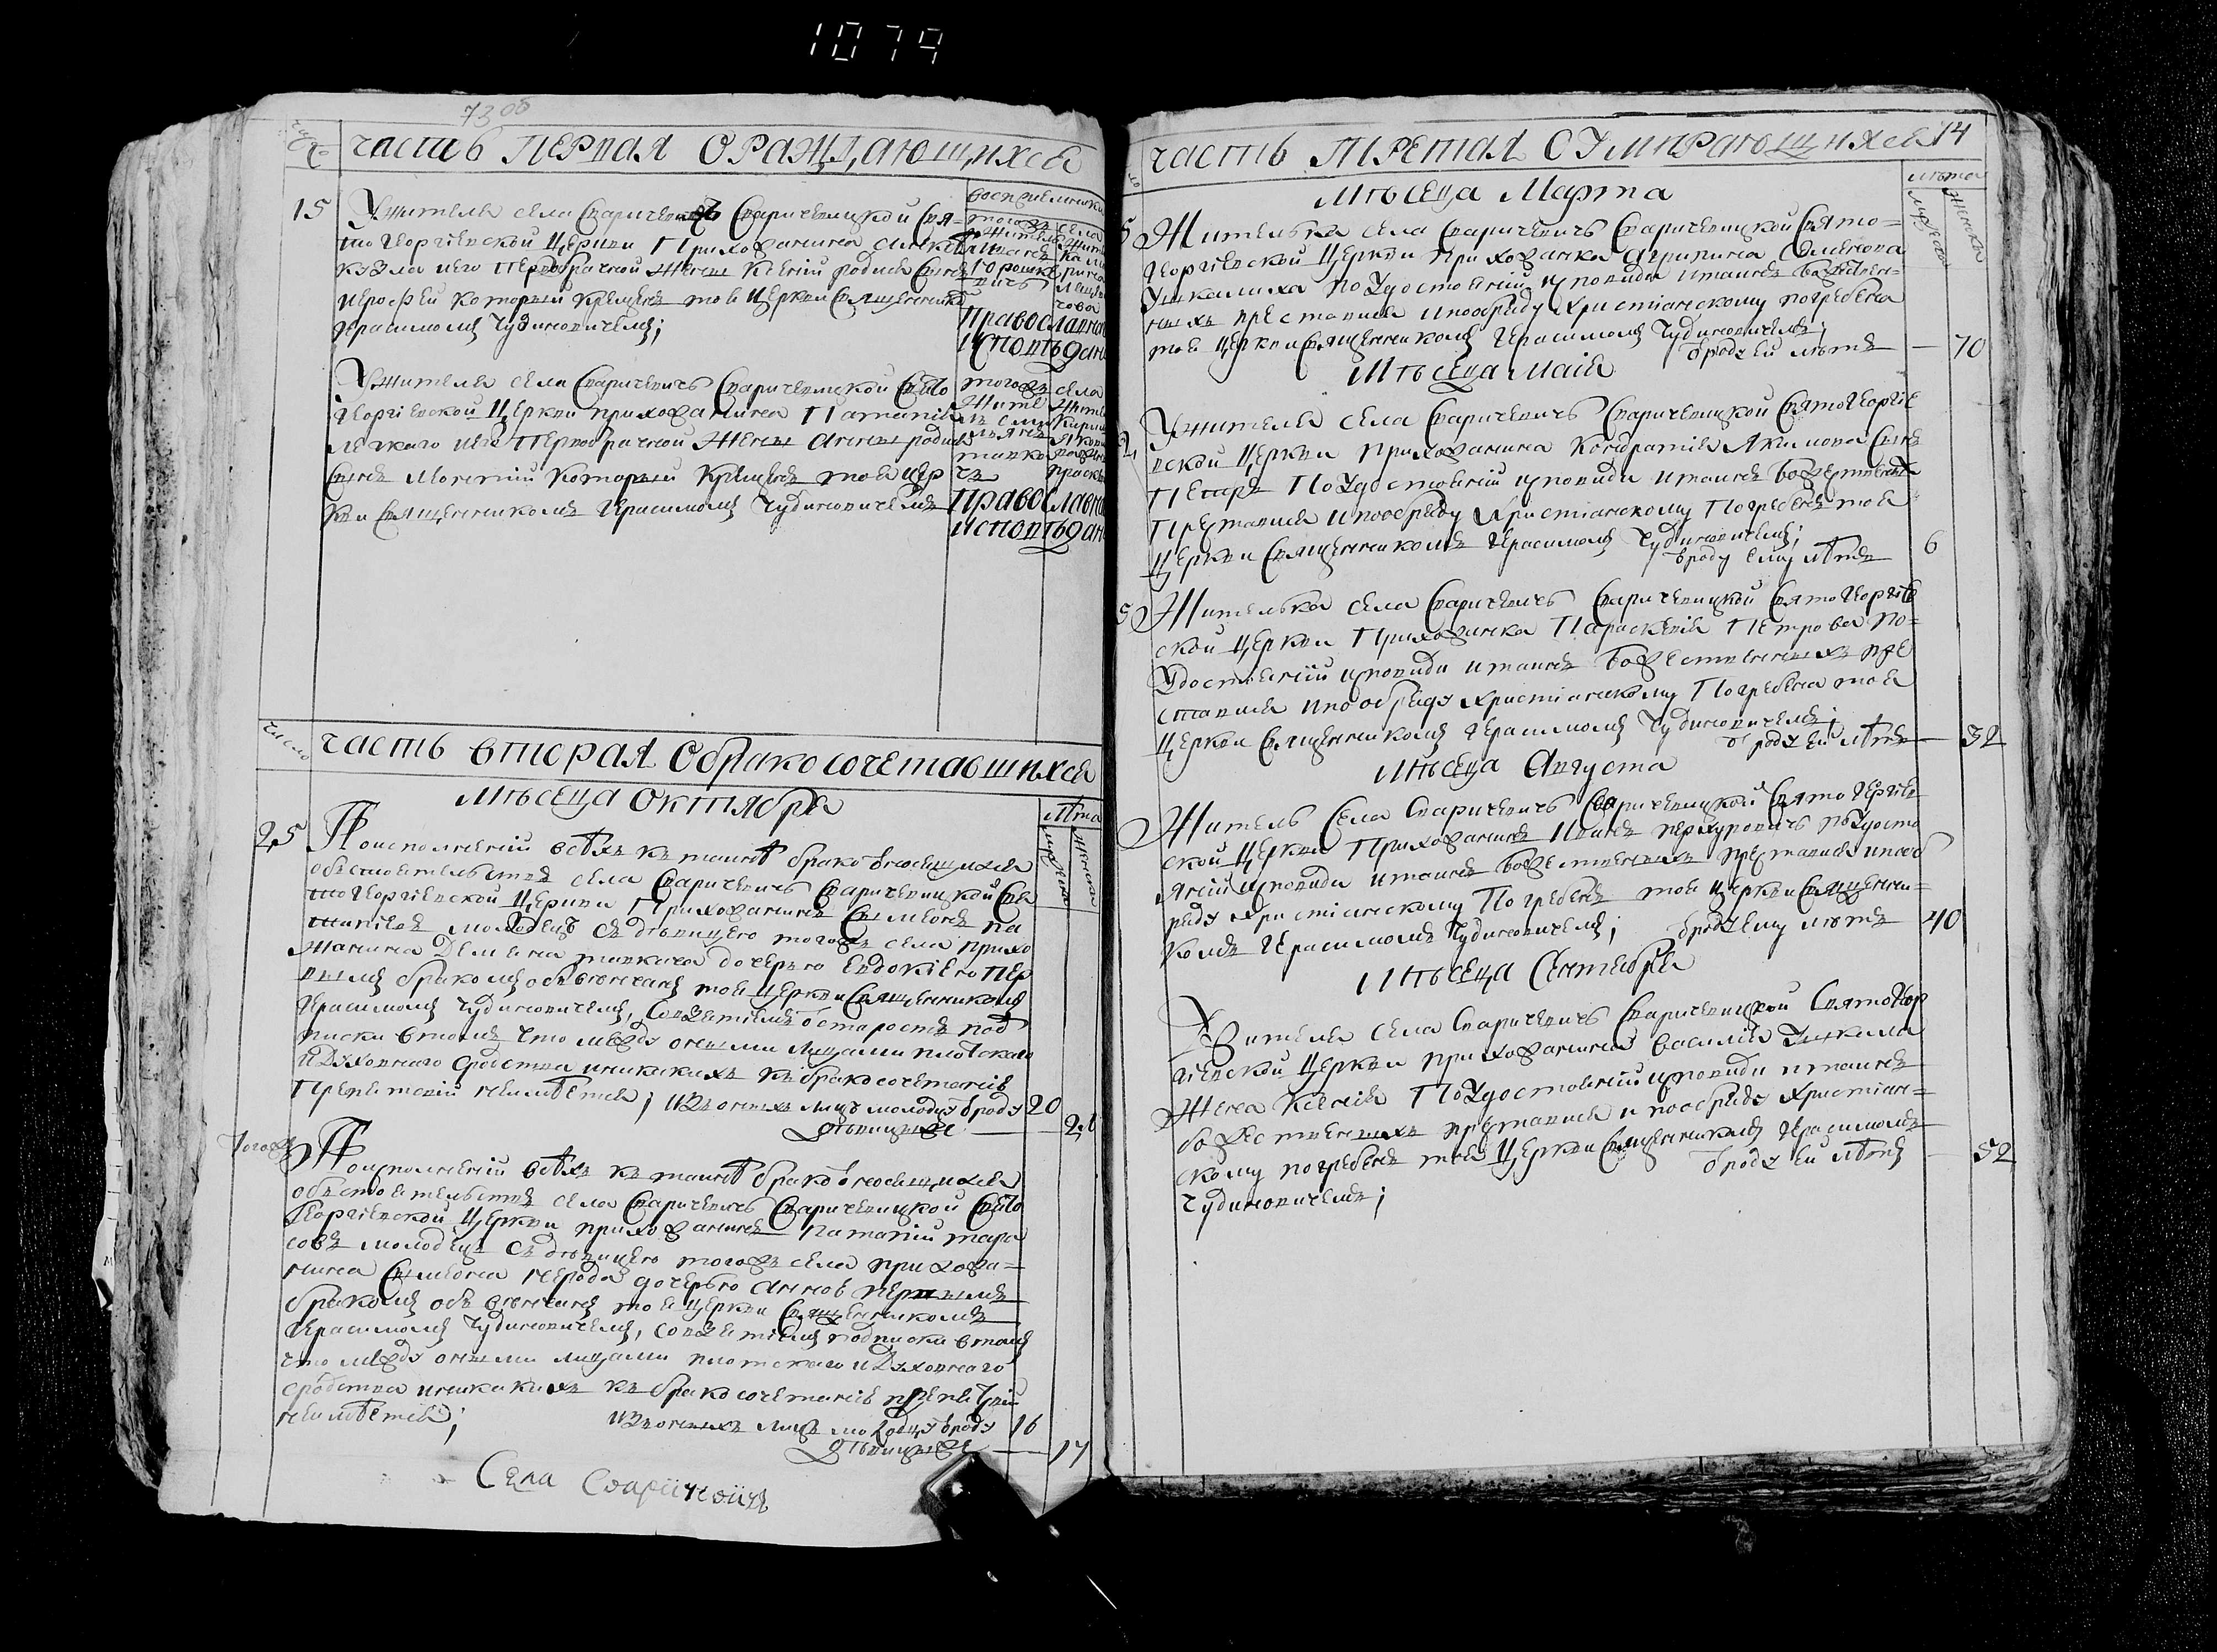 1079
73 об
часть первая о раждающихся
15
У жителя села Сваричевичъ Сваричевицкой Свя-
то Георгіевской церкви прихожанина
и его первобрачной жены Ксеніи родися сынъ
Іерофей который крещенъ тоя церкви священникомъ
Герасимомъ Чудиновичемъ;
воспріемники
православнаго
исповѣдан
У жителя села Сваричевичъ Сваричевицкой Свято
Георгіевской церкви прихожанина Игнатія
и его первобрачной жены Анны родися
сынъ Моисеий который крещенъ тоя цер
кви священникомъ Герасимомъ Чудиновичемъ
православна
исповѣдан
число
часть вторая о бракосочетавшихся
Мѣсеца Октября
лѣта
мужеска
женска
25
По исполненіи всѣхъ къ таинѣ брака относящихся
обстоятельствъ села Сваричевичъ Сваричевицкой Свя
то Георгіевской церкви прихожанинъ Сымеонъ
молодецъ съ дѣвицею тогожъ села прихо
жанина Демяна ткача дочерью Евдокіею пер
вымъ бракомъ обвѣнчанъ тоя церкви священникомъ
Герасимомъ Чудиновичемъ, со взятіемъ от старостъ под
писки в томъ что между оными лицами плотскаго
и духовнаго сродства и никакихъ къ бракосочетанію
препятствій неимѣется; изъ оныхъ лицъ молодцу от роду 20
дѣвицы же — 21
Тогожъ
По исполненіи всѣхъ къ таинѣ брака относящихся
обстоятельствъ села Сваричевичъ Сваричевицкой Свято
Георгіевской церкви прихожанинъ Игнатій тара
совъ молодецъ съ дѣвицею тогожъ села прихожа-
нина Сымеона дочерью Анною первымъ
бракомъ обвѣнчанъ тоя церкви священникомъ
Герасимомъ Чудиновичемъ, со взятіемъ подписки в томъ
что между оными лицами плотскаго и духовнаго
сродства и никакихъ къ бракосочетанію препятствій
неимѣется; изъ оныхъ лицъ молодцу от роду 16
дѣвицы же — 17
Села Сваричевичъ
часть третая о умирающихся 74
Мѣсеца Марта
лѣта
мужеска
женска
Жителька села Сваричевичъ Сваричевицкой Свято-
Георгіевской церкви прихожанка Агрипина Семенова
по удостоеніи исповиди и таинъ божествен-
ныхъ преставися и по обряду христіанскому погребена
тоя церкви священникомъ Герасимомъ Чудиновичемъ;
от роду ей лѣтъ — 70
Мѣсеца Маія
2
У жителя села Сваричевичъ Сваричевицкой Свято Георгіе
вской церкви прихожанина Кондратія Якимова сынъ
Петръ по удостоеніи исповиди и таинъ божественныхъ
преставися и по обряду христіанскому погребенъ тоя
церкви священникомъ Герасимомъ Чудиновичемъ;
от роду ему лѣтъ 6
Жителька села Сваричевичъ Сваричевицкой Свято Георгіев
ской церкви прихожанка Параскевія Петрова по-
удостоеніи исповиди и таинъ божественныхъ пре
ставися и по обряду христіанскому погребена тоя
церкви священникомъ Герасимомъ Чудиновичемъ;
от роду ей лѣтъ — 32
Мѣсеца Августа
Житель села Сваричевичъ Сваричевицкой Свято Георгіев
ской церкви прихожанинъ Иванъ по удосто
яніи исповиди и таинъ божественныхъ преставися и по об
ряду христіанскому погребенъ тоя церкви священни-
комъ Герасимомъ Чудиновичемъ; от роду ему лѣтъ 40
Мѣсеца Сентября
Жителя села Сваричевичъ Сваричевицкой Свято Геор
гіевской церкви прихожанина Василія
жена Ксенія по удостоеніи исповиди и таинъ
божественныхъ преставися и по обряду христіан-
скому погребена тоя церкви священникомъ Герасимомъ
Чудиновичемъ; от роду ей лѣтъ — 52